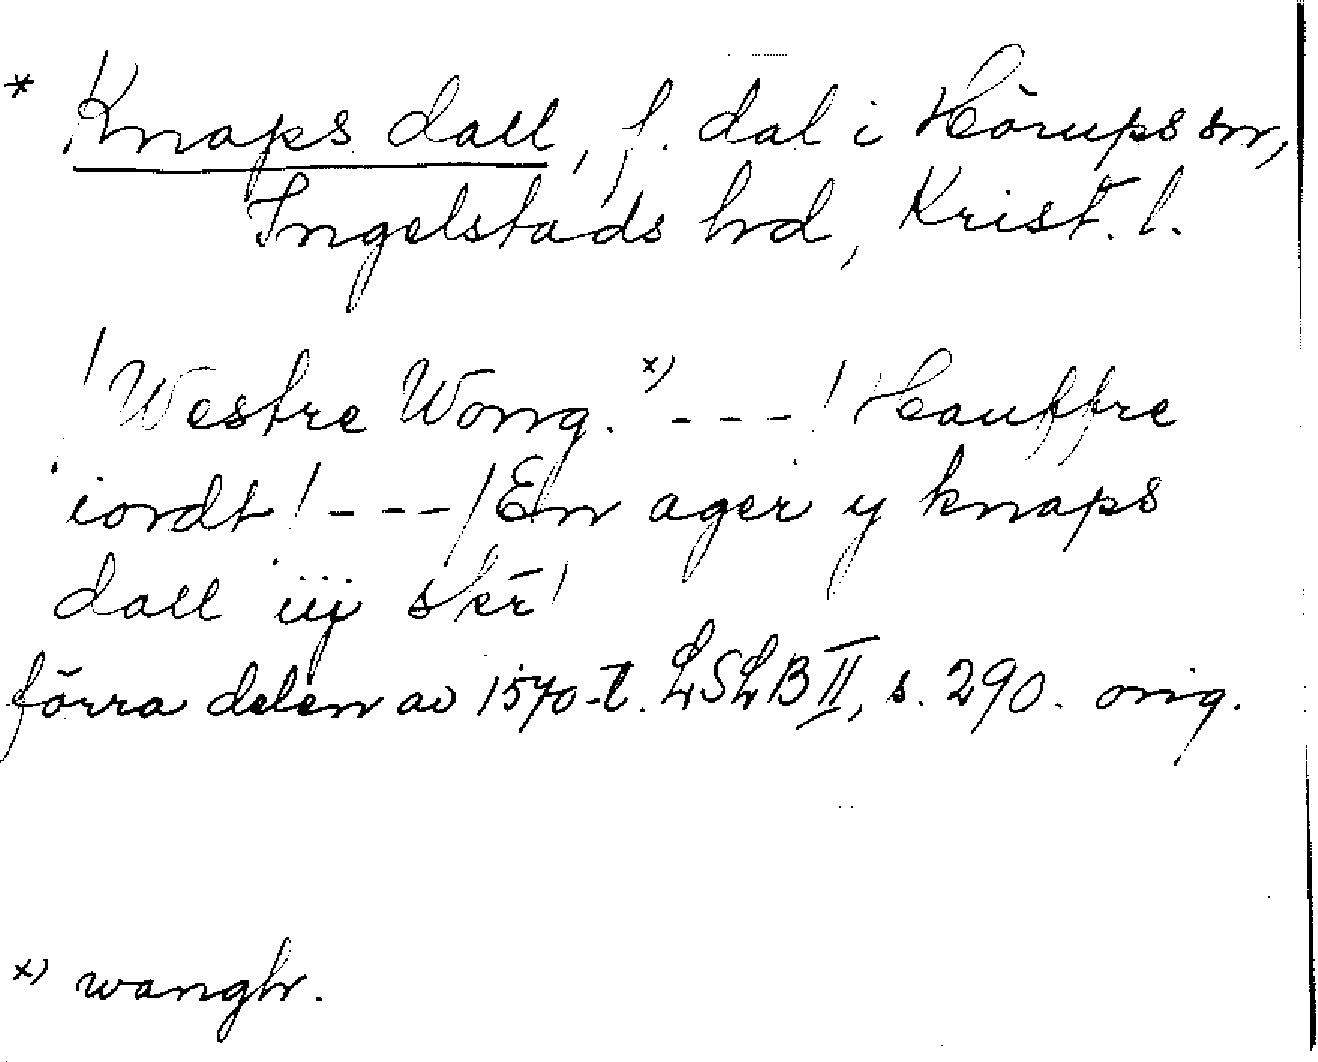 * Knaps dall, f. dal i Hörups sn,
Ingelstads hrd, Krist. l.
! Westre Wong. x) - - - ! Hauffre
iordt ! - - - / En ager y knaps
dall iij sker !
förra delen av 1570-t. LSLB II, s. 290. orig.
x) wangh.